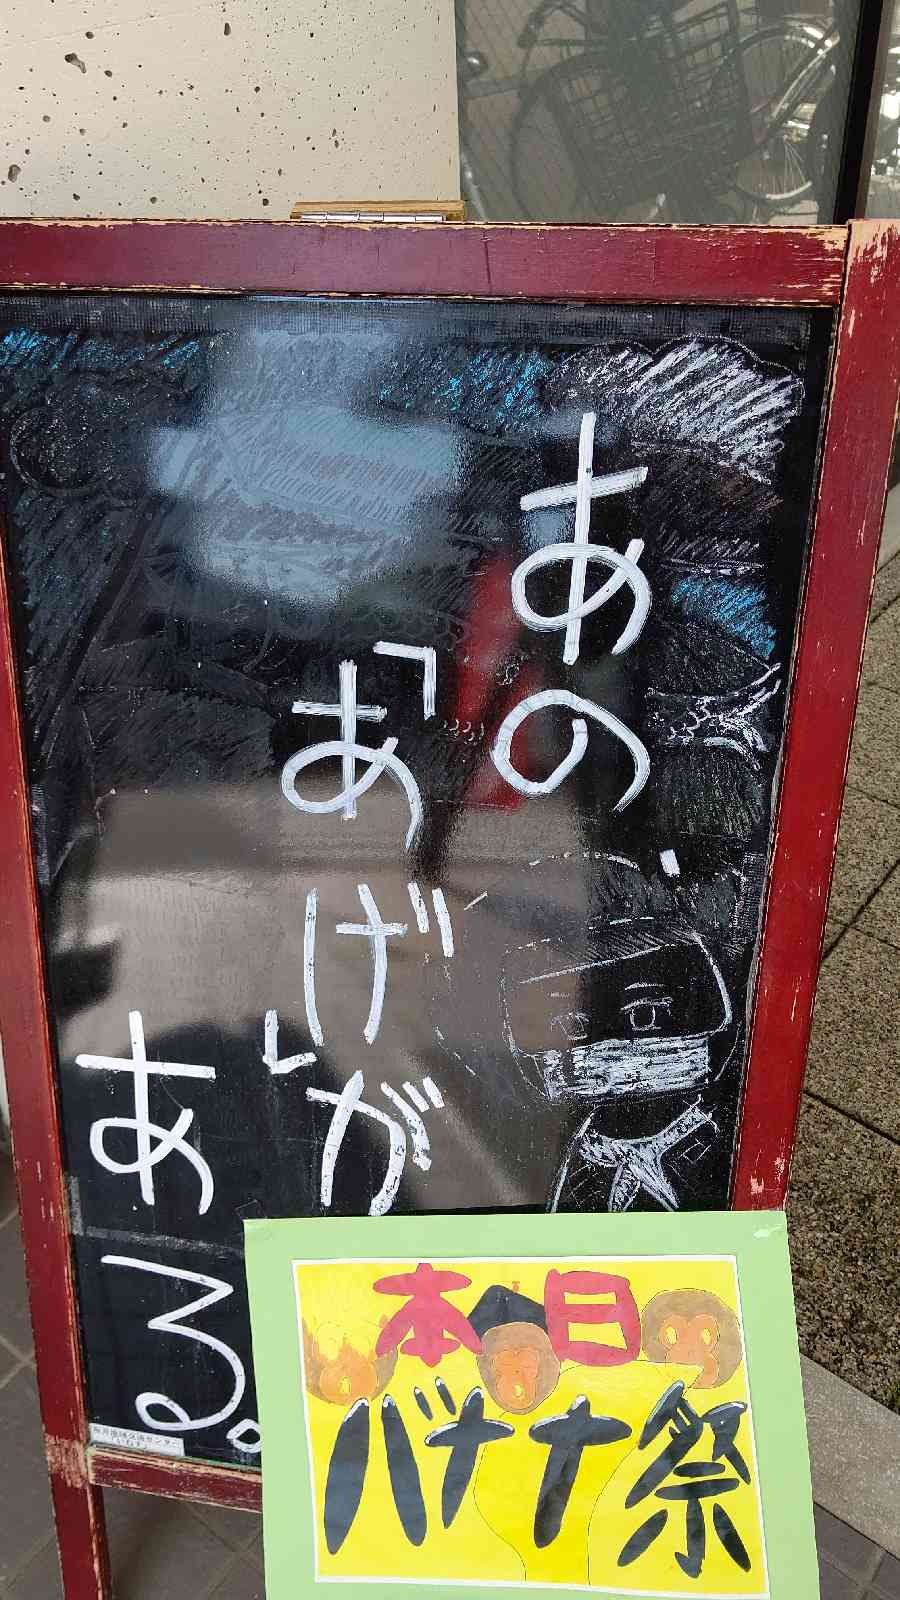 あの
「あげが」
ある。
本日
バナナ祭